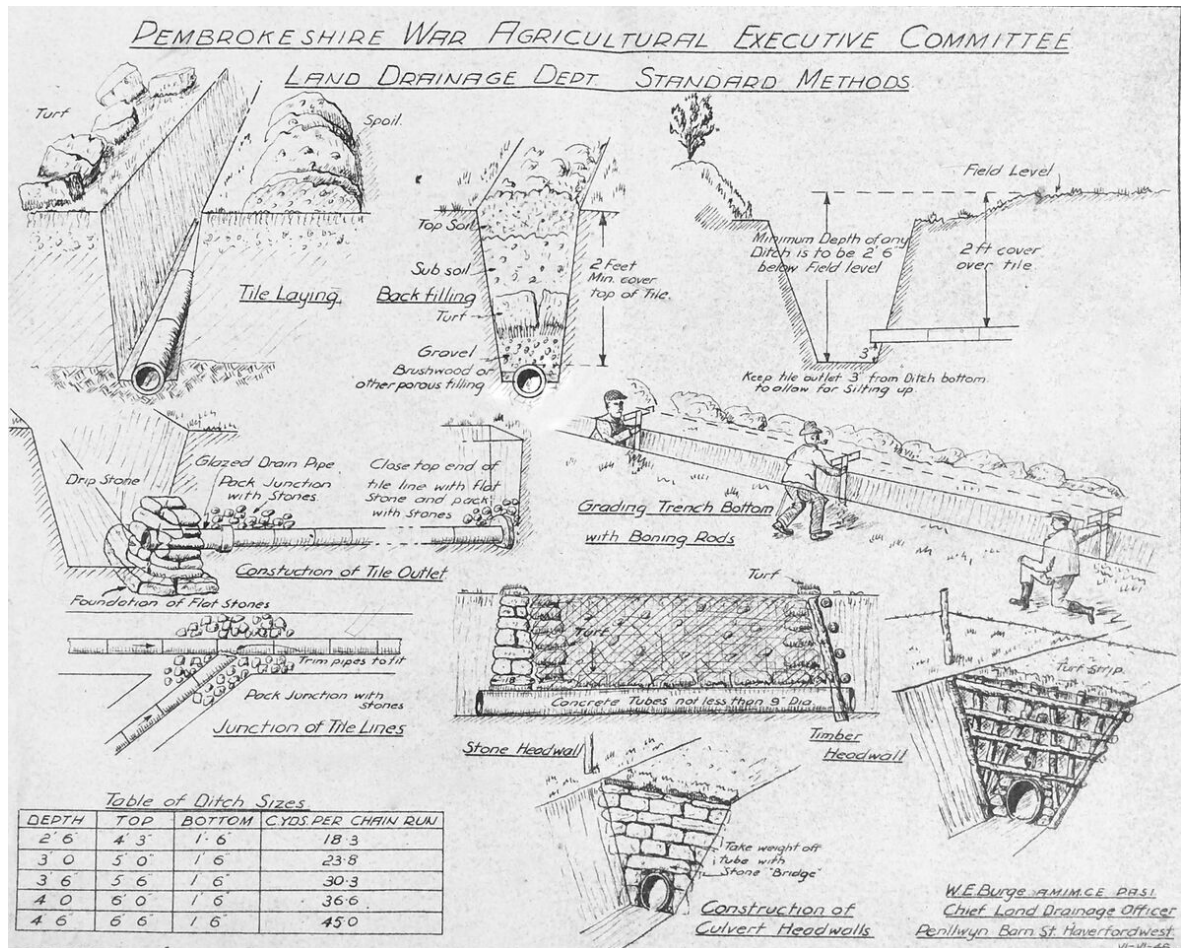 PEMBROKESHIRE WAR AGRICULTURAL EXECUTIVE COMMITTEE
LAND DRAINAGE DEPT. STANDARD METHODS
Turf
Spoil.
Tile Laying.
Top Soil
Sub soil
Back filling
Turf
Gravel
Brushwood or
other porous filling
2 Feet
Min. cover
top of Tile.
Field Level
Minimum Depth of any
Ditch is to be 2' 6"
below Field level
2 ft cover
over tile.
3"
Keep tile outlet 3" from Ditch bottom
to allow for Silting up.
Drip Stone
Glazed Drain Pipe
Pack Junction
with Stones.
Close top end of
tile line with flat
Stone and pack
with Stones
Constuction of Tile Outlet
Foundation of Flat Stones
Grading Trench Bottom
with Boning Rods
Trim pipes to fit
Pack Junction with
stones
Junction of Tile Lines
Turf
Turf
18"
Concrete Tubes not less than 9" Dia.
Stone Headwall
Timber
Headwall
Turf Strip.
Take weight off
tube with
Stone "Bridge"
Construction of
Culvert Headwalls
Table of Ditch Sizes.
DEPTH TOP BOTTOM C.YDS. PER CHAIN RUN
2' 6" 4' 3" 1' 6" 18·3
3' 0" 5' 0" 1' 6" 23·8
3' 6" 5' 6" 1' 6" 30·3
4' 0" 6' 0" 1' 6" 36·6
4' 6" 6' 6" 1' 6" 45·0
W.E. Burge A.M.I.M.C.E. P.A.S.I.
Chief Land Drainage Officer
Penllwyn Barn St. Haverfordwest.